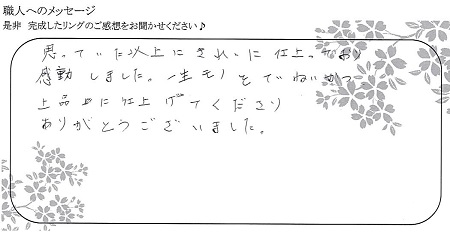 職人へのメッセージ
是非 完成したリングのご感想をお聞かせください♪
思っていた以上にきれいに仕上がっており
感動しました。一生モノをていねいかつ
上品に仕上げてくださり
ありがとうございました。